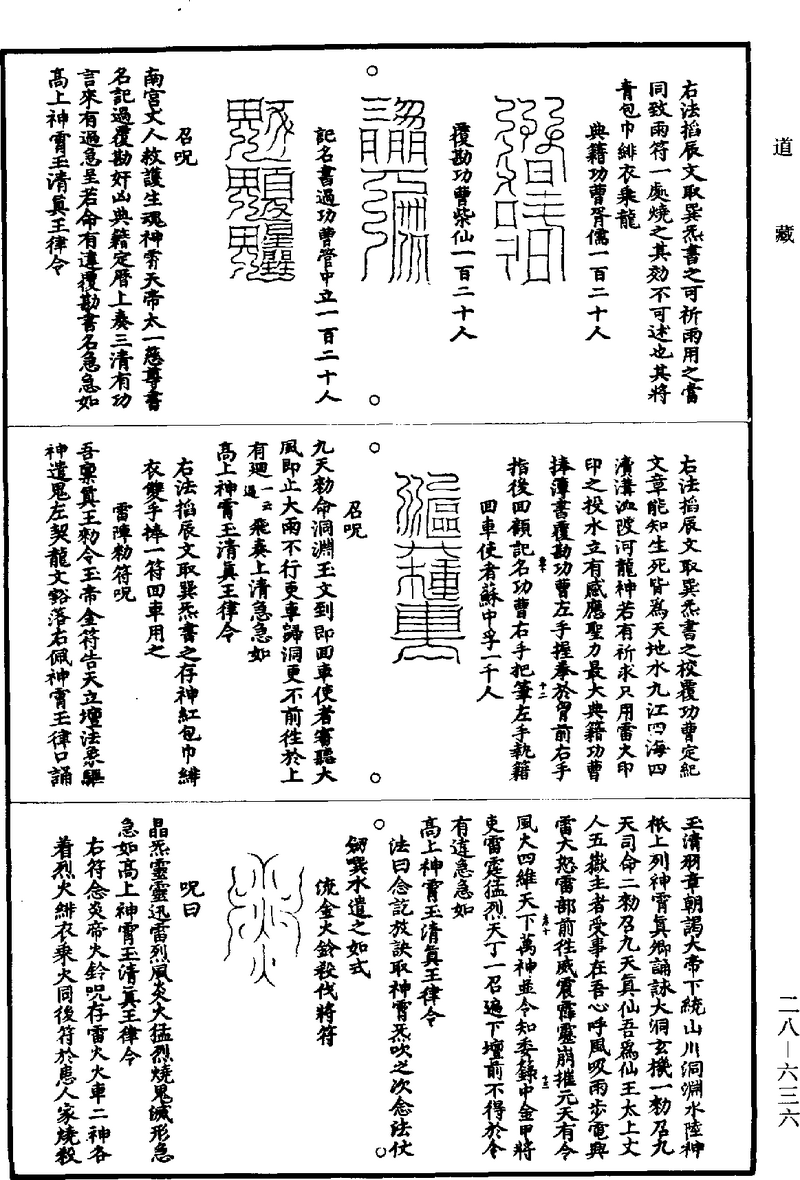 道藏
右法掐辰文取巽炁書之可祈雨用之當
同致雨符一處燒之其効不可述也其將
青包巾緋衣乘龍
典籍功曹胥儒一百二十人
覆勘功曹柴仙一百二十人
記名書過功曹管中立一百二十人
召呪
南宮丈人救護生魂神霄天帝太一慈尊書
名記過覆勘奸凶典籍定曆上奏三清有功
言來有過急呈若命有違覆勘書名急急如
高上神霄玉清真王律令
右法掐辰文取巽炁書之校覆功曹定紀
文章能知生死皆為天地水九江四海四
瀆溝洫陂河龍神若有祈求只用雷火印
印之投水立有感應聖力最大典籍功曹
捧簿書覆勘功曹左手握拳於胷前右手
指後回顧記名功曹右手把筆左手執籍
回車使者蘇中孚一千人
召呪
九天勑命洞淵玉文到即回車使者審聽大
風即止大雨不行吏車歸洞更不前往於上
有迴一云過飛奏上清急急如
高上神霄玉清真王律令
右法掐辰文取巽炁書之存神紅包巾緋
衣雙手捧一符回車用之
雷陣勑符呪
吾稟真王勑令玉帝金符告天立壇法系驅
神遣鬼左契龍文豁落右佩神霄玉律口誦
玉清羽章朝謁大帝下統山川洞淵水陸神
祇上列神霄真卿誦詠大洞玄機一勑召九
天司命二勑召九天真仙吾為仙王太上丈
人五嶽主者受事在吾心呼風吸雨步電興
雷大怒雷部前往威震霹靂崩摧元天有令
風火四維天下萬神並令知委錄中金甲將
吏雷霆猛烈天丁一召遍下壇前不得於令
有違急急如
高上神霄玉清真王律令
法曰念訖放訣取神霄炁吹之次念法仗
劒噀水遣之如式
流金火鈴殺伐將符
呪曰
晶炁靈靈迅雷烈風炎火猛烈燒鬼滅形急
急如高上神霄玉清真王律令
右符念炎帝火鈴呪存雷火火車二神各
着烈火緋衣乘火同後符於患人家燒殺
二八—六三六